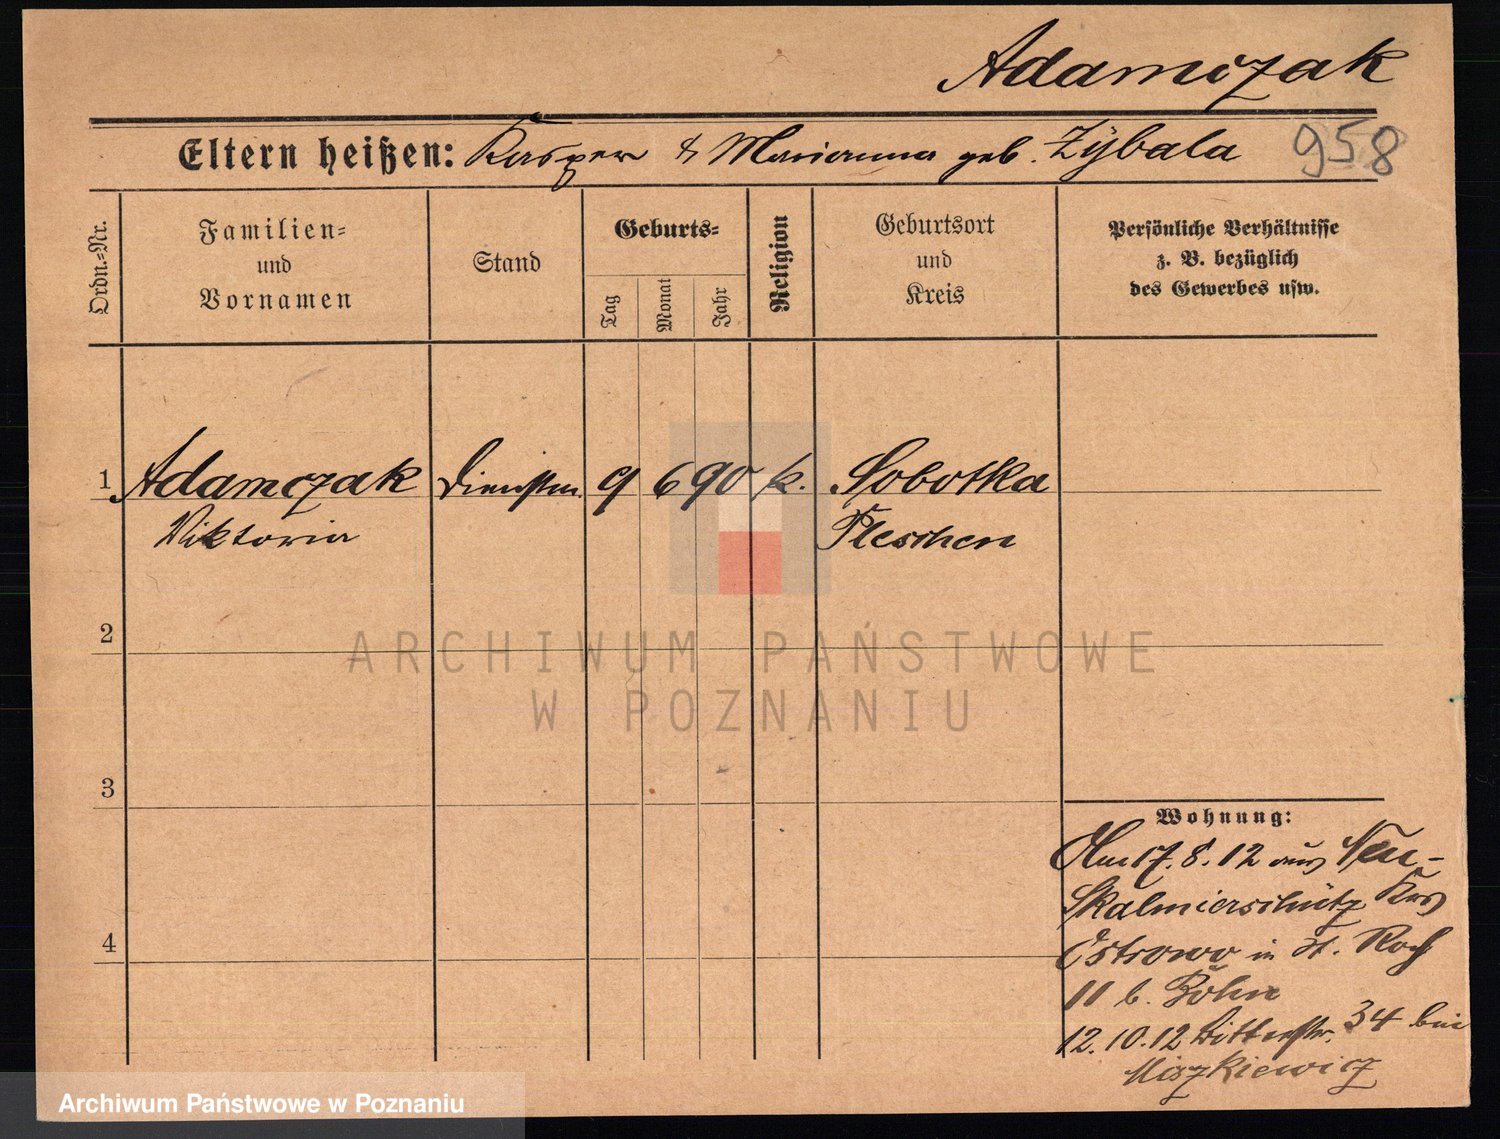 Adamczak
Eltern heißen: Kasper & Marianna geb. Zybala 958
Ordn.-Nr.
Familien-
und
Vornamen
Stand
Geburts-
Tag
Monat
Jahr
Religion
Geburtsort
und
Kreis
Persönliche Verhältnisse
z. B. bezüglich
des Gewerbes usw.
1 Adamczak Dienstm. 9 6 90 k. Sobotka
Viktoria Pleschen
2
ARCHIWUM PAŃSTWOWE
W POZNANIU
3
Wohnung:
Am 17.8.12 aus Neu-
Skalmierschütz Krs
4
Ostrowo in St. Roch
11 b. Böhm
12.10.12 Ritterstr. 34 bei
Miszkiewicz
Archiwum Państwowe w Poznaniu